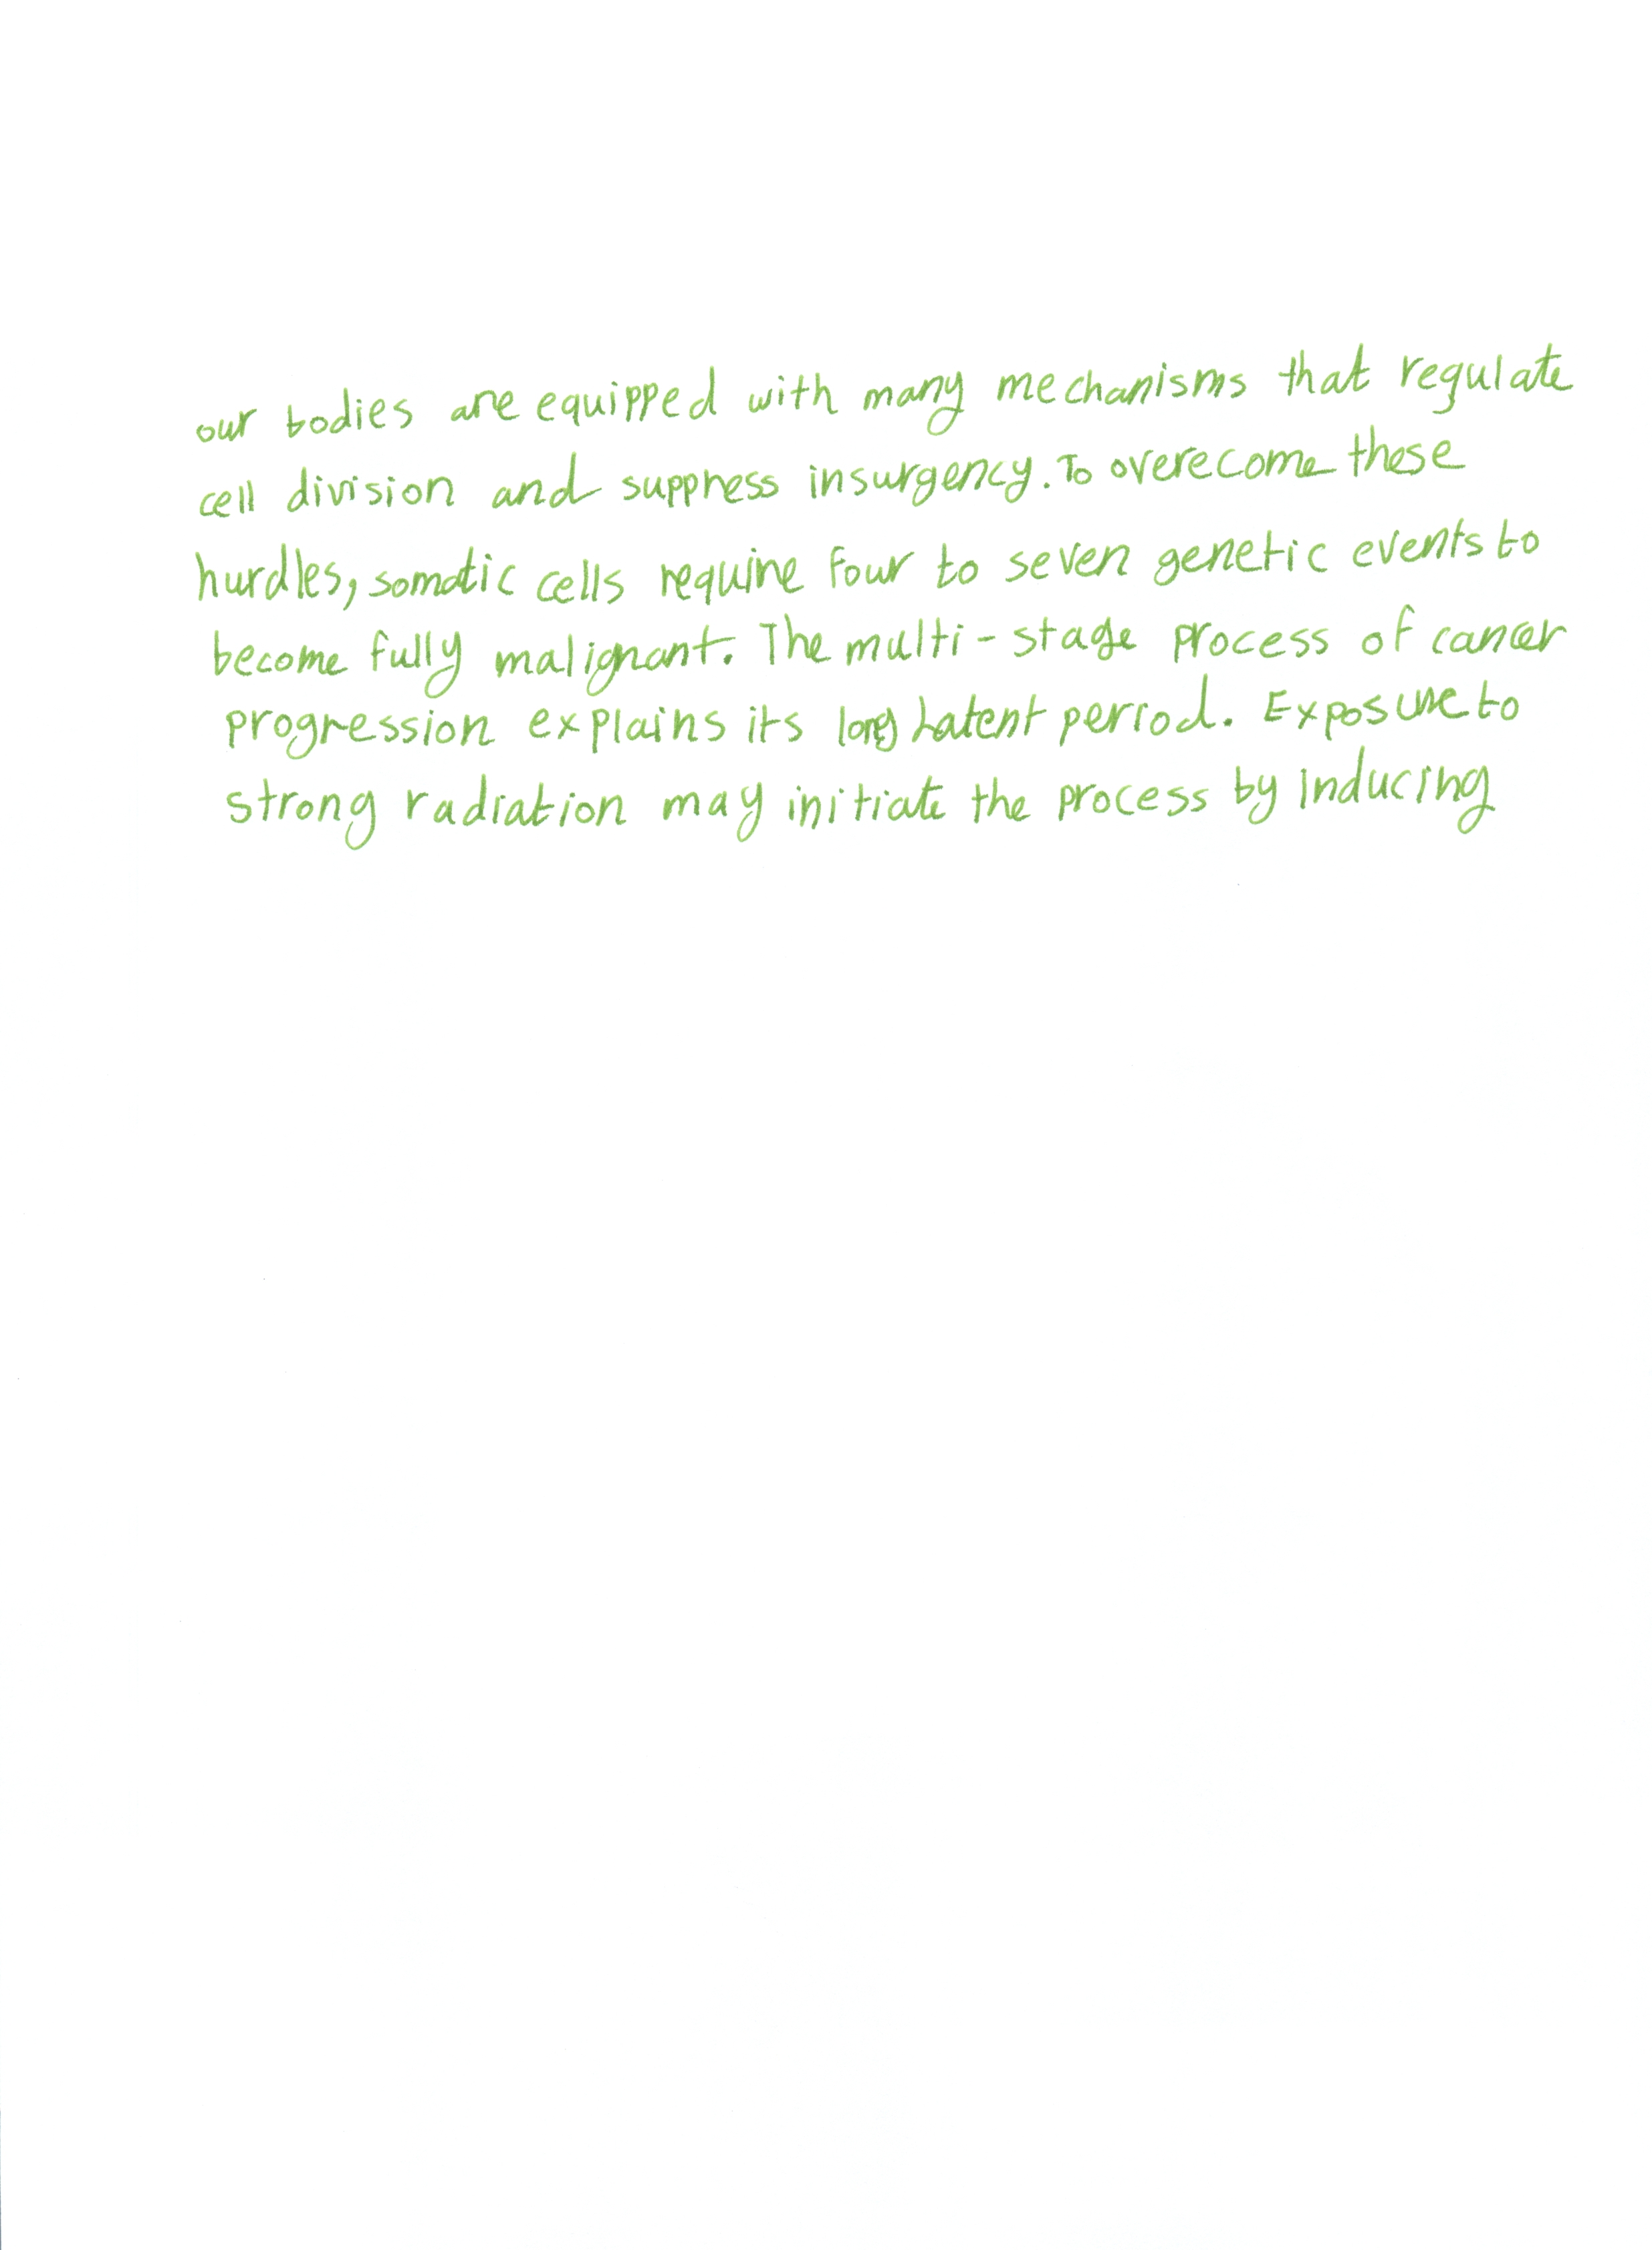 our bodies are equipped with many mechanisms that regulate
cell division and suppress insurgency. To overecome these
hurdles, somatic cells require four to seven genetic events to
become fully malignant. The multi-stage process of cancer
progression explains its long Latent period. Exposure to
strong radiation may initiate the process by inducing